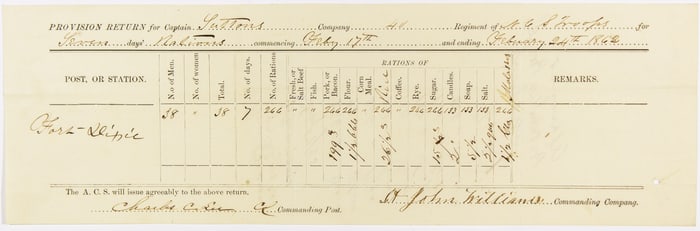 PROVISION RETURN for Captain Suttons Company 40 Regiment of N. C. S. Troops for
Seven days' Rations commencing Feby 17th and ending February 24th 1862
RATIONS OF
POST, OR STATION. N.o of Men. No. of women. Total. No. of days. No. of Rations Fresh, or Salt Beef Fish. Pork, or Bacon. Flour. Corn Meal. Rice Coffee. Rye. Sugar. Candles. Soap. Salt. Molasses REMARKS.
38 " 38 7 266 " " 266 266 " 266 " 266 266 133 133 133 266
Fort Dixie 199 1/2
The A. C. S. will issue agreeably to the above return.
Charles C. Lee Col Commanding Post. Lt John Williams Commanding Company.